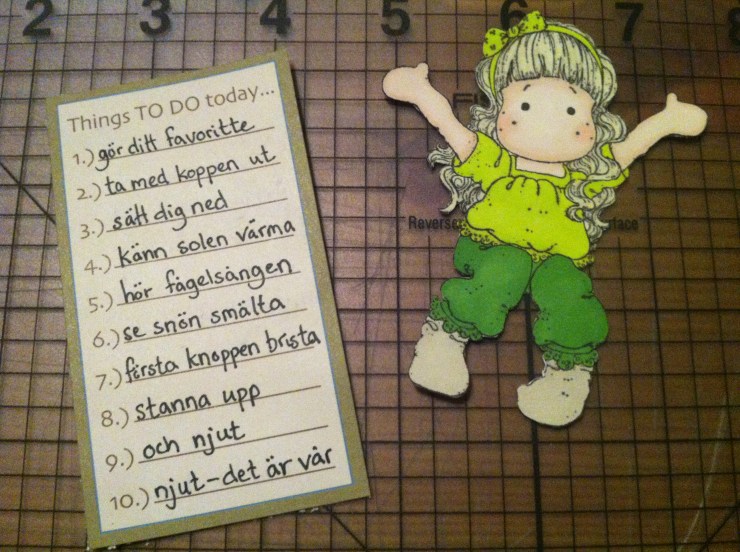 2 3 4 5 6 7 8
Things TO DO today...
1.) gör ditt favoritte
2.) ta med koppen ut
3.) sätt dig ned
4.) känn solen värma
5.) hör fågelsången
6.) se snön smälta
7.) första knoppen brista
8.) stanna upp
9.) och njut
10.) njut-det är vår